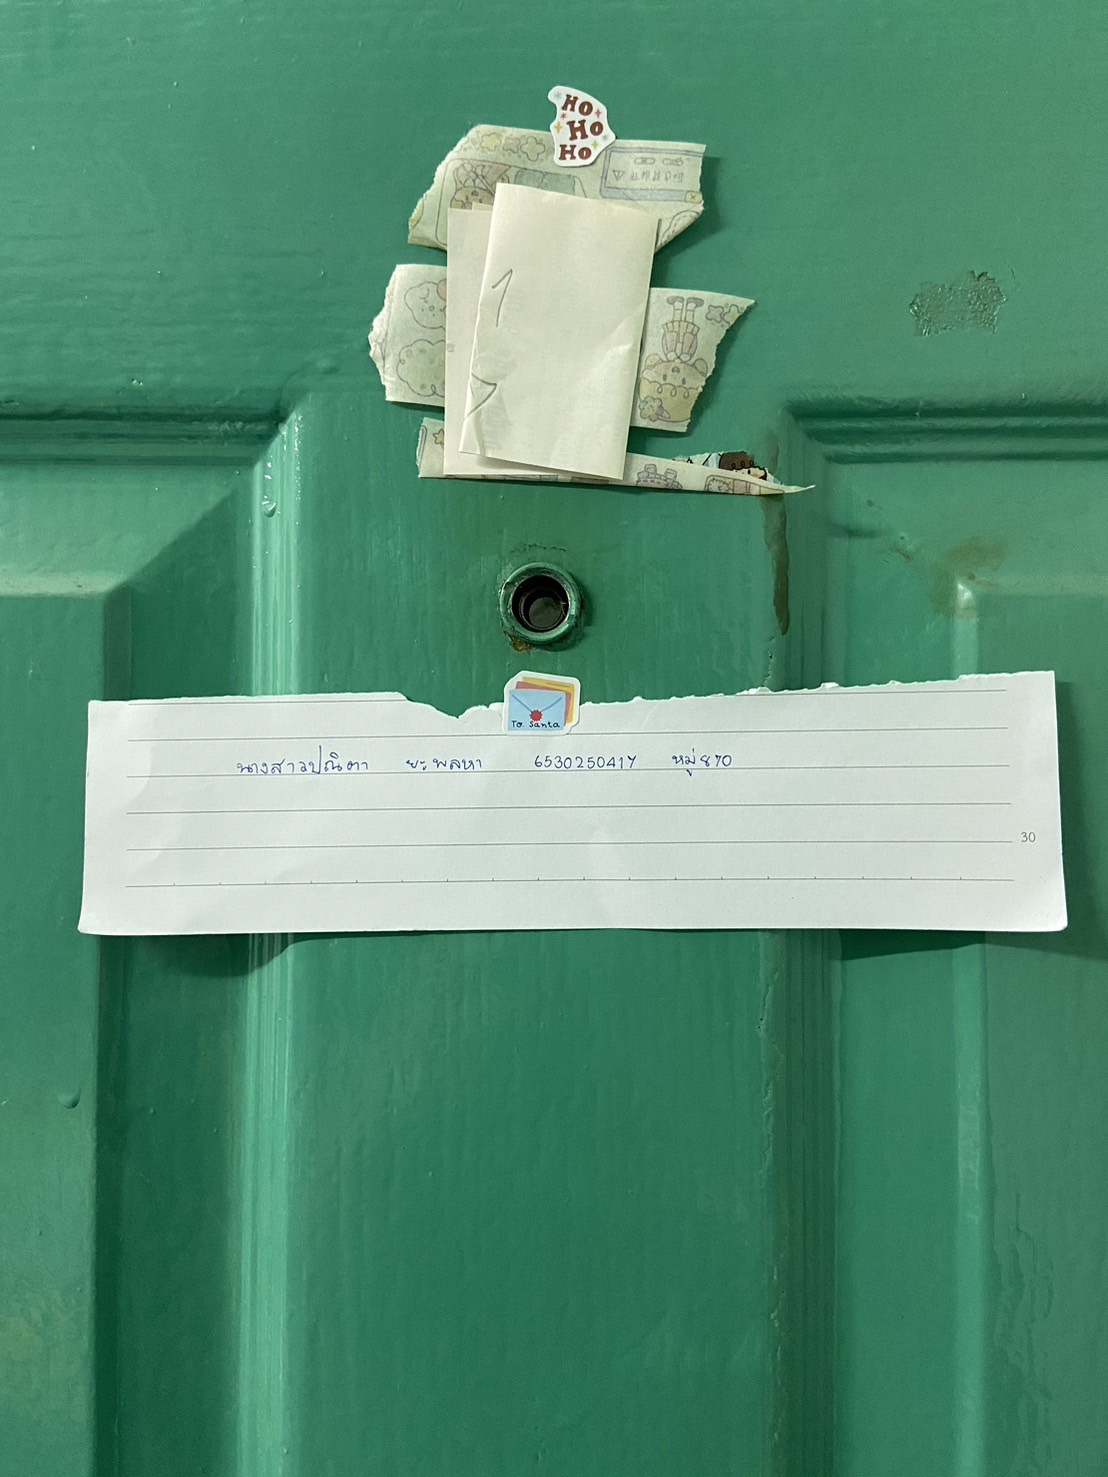 HO
HO
HO
To Santa
นางสาวปณิตา ยะพลหา 6530250417 หมู่870
30